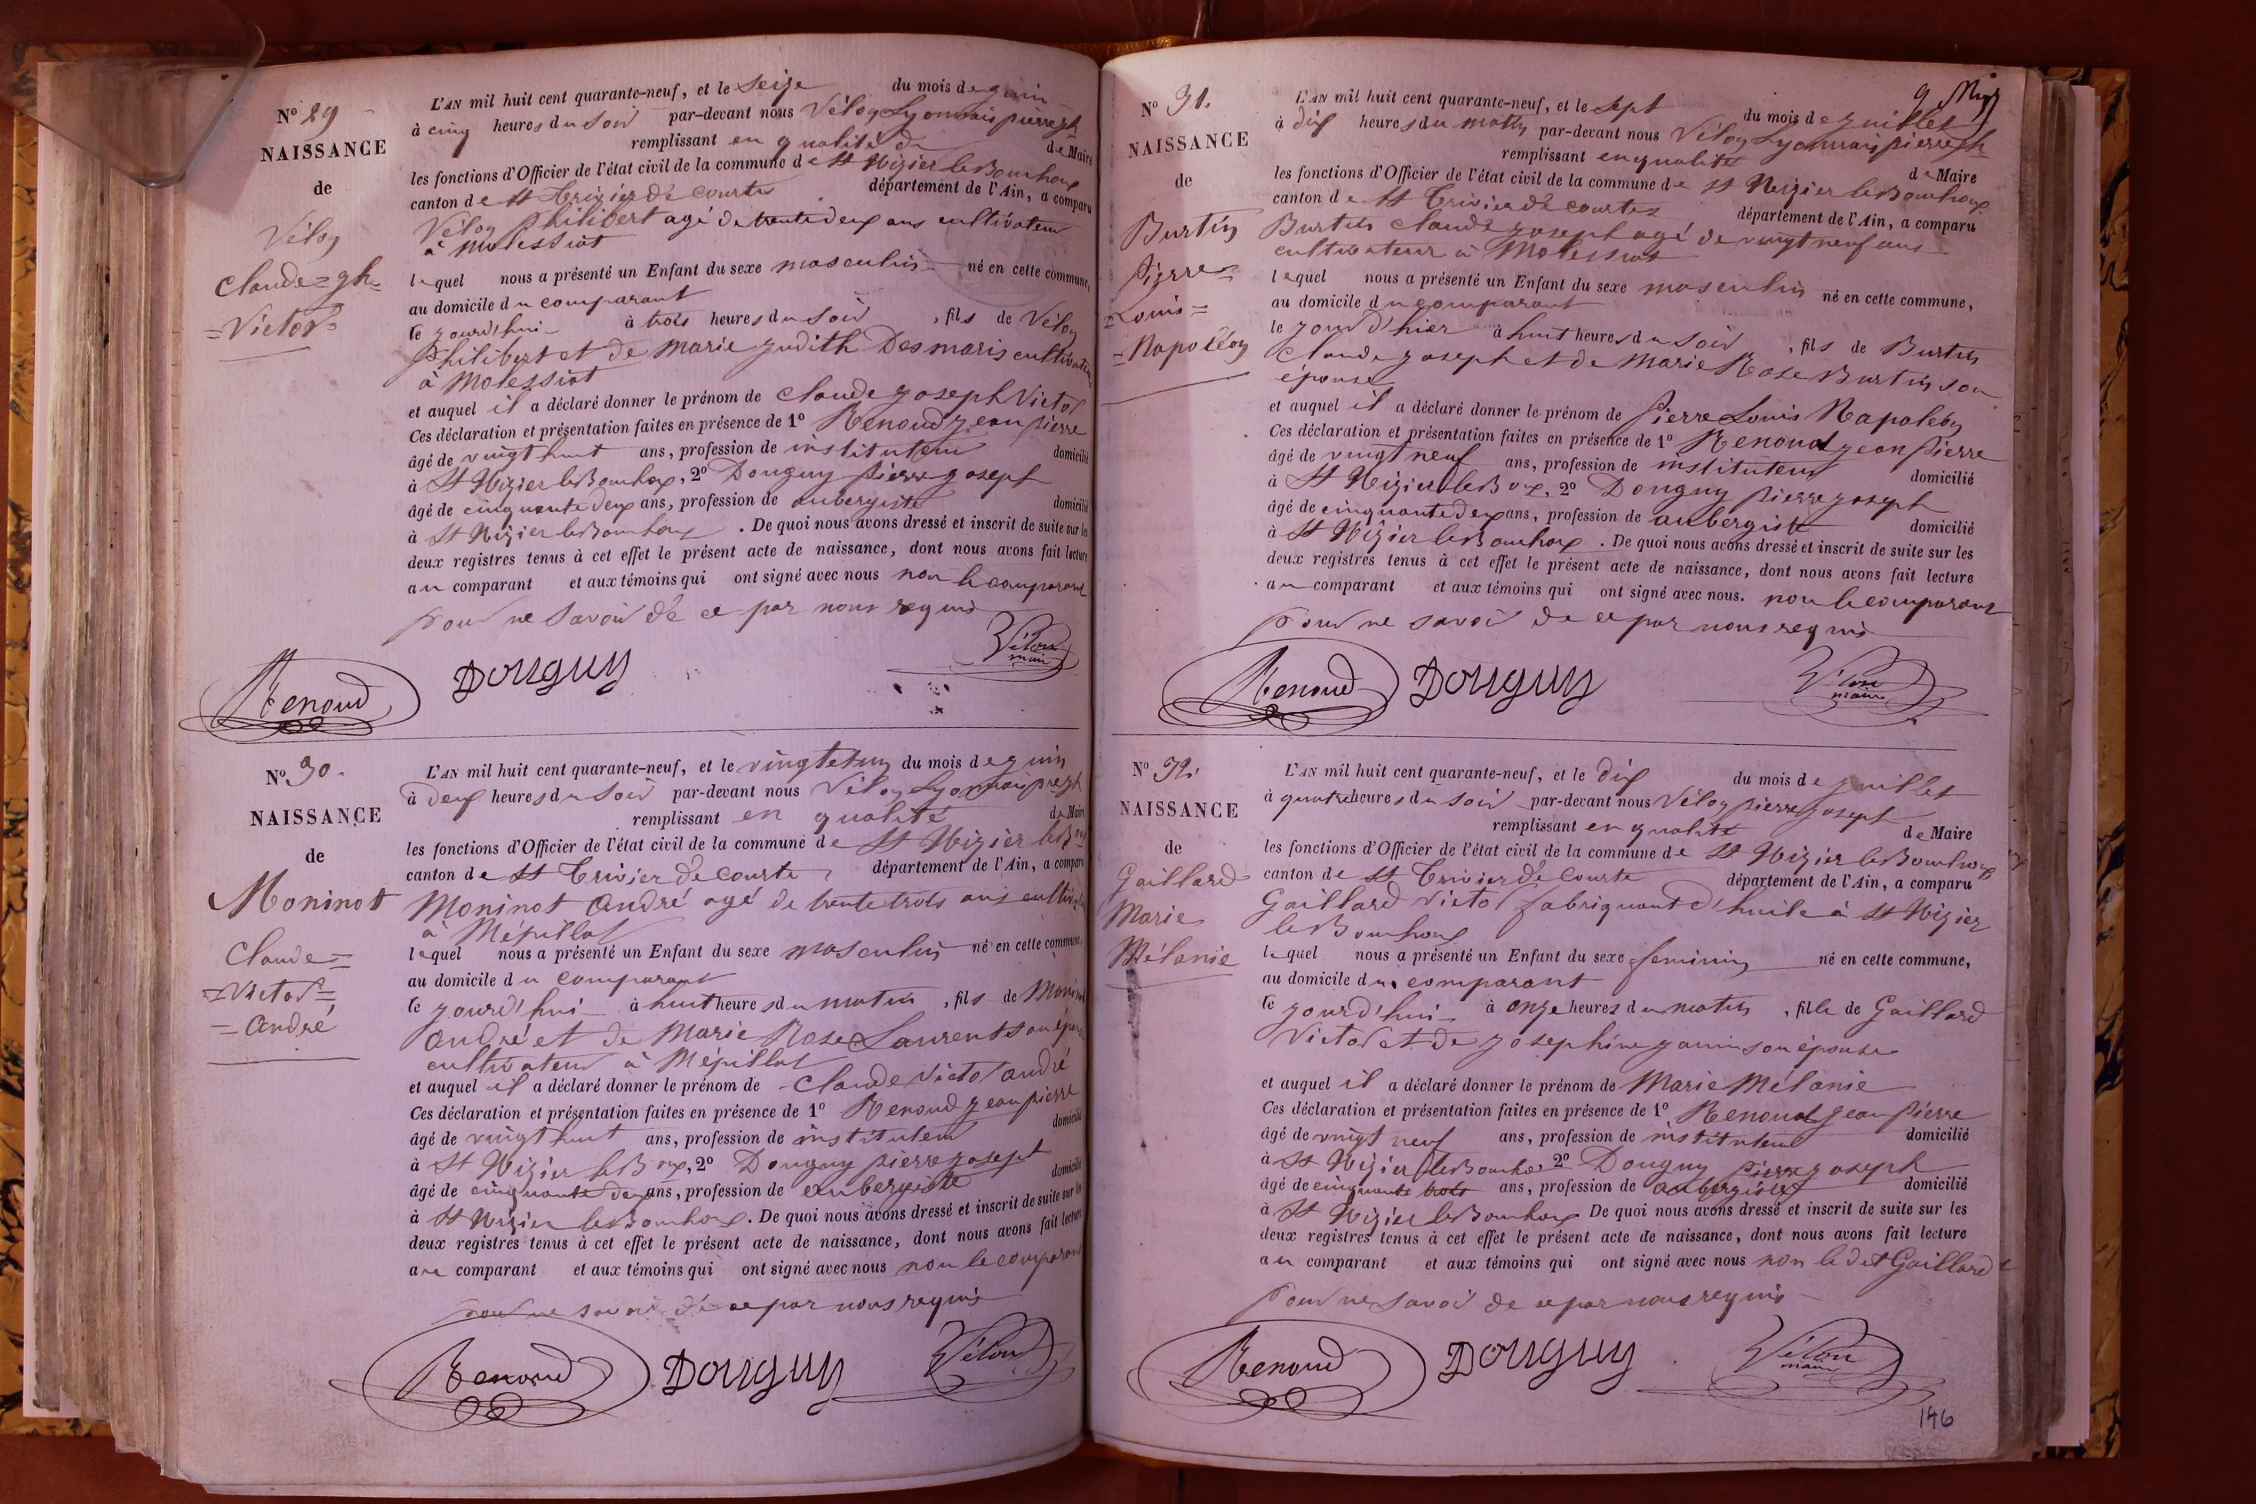 Nº 29
NAISSANCE
de
Véloy
Claude = Jph =
= Victor =
L'AN mil huit cent quarante-neuf, et le seize du mois de juin
à cinq heures du soir par-devant nous Véloy Lyonnais pierre jh
remplissant en qualité de de Maire
les fonctions d'Officier de l'état civil de la commune de St Nizier le Bouchoux
canton de St Trivier de Courtes département de l'Ain, a comparu
Véloy Philibert agé de trente deux ans cultivateur
à Molessiat
lequel nous a présenté un Enfant du sexe masculin né en cette commune,
au domicile du comparant
le jourd'hui à trois heures du soir, fils de Véloy
Philibert et de Marie Judith Desmaris cultivateur
à Molessiat
et auquel il a déclaré donner le prénom de Claude Joseph Victor
Ces déclaration et présentation faites en présence de 1º Renoud Jean pierre
âgé de vingt huit ans, profession de instituteur domicilié
à St Nizier le Bouchoux, 2º Douguy pierre joseph
âgé de cinquante deux ans, profession de aubergiste domicilié
à St Nizier le Bouchoux. De quoi nous avons dressé et inscrit de suite sur les
deux registres tenus à cet effet le présent acte de naissance, dont nous avons fait lecture
au comparant et aux témoins qui ont signé avec nous non le comparant
pour ne savoir de ce par nous requis
Renoud Douguy
maire
Nº 30.
NAISSANCE
de
Moninot
Claude =
= Victor =
= André
L'AN mil huit cent quarante-neuf, et le vingt et un du mois de juin
à deux heures du soir par-devant nous Véloy Lyonnais pre jh
remplissant en qualité de Maire
les fonctions d'Officier de l'état civil de la commune de St Nizier le Boux
canton de St Trivier de Courte, département de l'Ain, a comparu
Moninot André agé de trente trois ans
à Mépillat
lequel nous a présenté un Enfant du sexe masculin né en cette commune,
au domicile du comparant
le jourd'hui à huit heures du matin, fils de Moninot
André et de Marie Rose Laurent son
cultivateur à Mépillat
et auquel il a déclaré donner le prénom de Claude Victor André
Ces déclaration et présentation faites en présence de 1º Renoud Jean pierre
âgé de vingt huit ans, profession de instituteur domicilié
à St Nizier le Boux, 2º Douguy pierre joseph
âgé de cinquante deux ans, profession de aubergiste domicilié
à St Nizier le Bouchoux. De quoi nous avons dressé et inscrit de suite sur les
deux registres tenus à cet effet le présent acte de naissance, dont nous avons fait lecture
au comparant et aux témoins qui ont signé avec nous non le comparant
pour ne savoir de ce par nous requis
Renoud Douguy
Nº 31.
NAISSANCE
de
Burtin
Pierre =
= Louis =
= Napoléon
L'AN mil huit cent quarante-neuf, et le sept du mois de juillet
à dix heures du matin par-devant nous Véloy Lyonnais pierre jh
remplissant en qualité de Maire
les fonctions d'Officier de l'état civil de la commune de St Nizier le Bouchoux
canton de St Trivier de Courtes département de l'Ain, a comparu
Burtin Claude Joseph agé de vingt neuf ans
cultivateur à Molessiat
lequel nous a présenté un Enfant du sexe masculin né en cette commune,
au domicile du comparant
le jour d'hier à huit heures du soir, fils de Burtin
Claude Joseph et de Marie Rose Burtin son
épouse
et auquel il a déclaré donner le prénom de Pierre Louis Napoléon
Ces déclaration et présentation faites en présence de 1º Renoud Jean pierre
âgé de vingt neuf ans, profession de instituteur domicilié
à St Nizier le Boux, 2º Douguy pierre joseph
âgé de cinquante deux ans, profession de aubergiste domicilié
à St Nizier le Bouchoux. De quoi nous avons dressé et inscrit de suite sur les
deux registres tenus à cet effet le présent acte de naissance, dont nous avons fait lecture
au comparant et aux témoins qui ont signé avec nous. non le comparant
pour ne savoir de ce par nous requis
Renoud Douguy
maire
Nº 32.
NAISSANCE
de
Gaillard
Marie
Mélanie
L'AN mil huit cent quarante-neuf, et le dix du mois de juillet
à quatre heures du soir par-devant nous Véloy pierre joseph
remplissant en qualité de Maire
les fonctions d'Officier de l'état civil de la commune de St Nizier le Bouchoux
canton de St Trivier de Courte département de l'Ain, a comparu
Gaillard Victor fabriquant d'huile à St Nizier
le Bouchoux
lequel nous a présenté un Enfant du sexe feminin né en cette commune,
au domicile du comparant
le jourd'hui à onze heures du matin, fille de Gaillard
Victor et de Josephine son épouse
et auquel il a déclaré donner le prénom de Marie Mélanie
Ces déclaration et présentation faites en présence de 1º Renoud Jean pierre
âgé de vingt neuf ans, profession de instituteur domicilié
à St Nizier le Boucho 2º Douguy pierre joseph
âgé de cinquante trois ans, profession de aubergiste domicilié
à St Nizier le Bouchoux De quoi nous avons dressé et inscrit de suite sur les
deux registres tenus à cet effet le présent acte de naissance, dont nous avons fait lecture
au comparant et aux témoins qui ont signé avec nous non le dit Gaillard
pour ne savoir de ce par nous requis
Renoud Douguy
maire
146